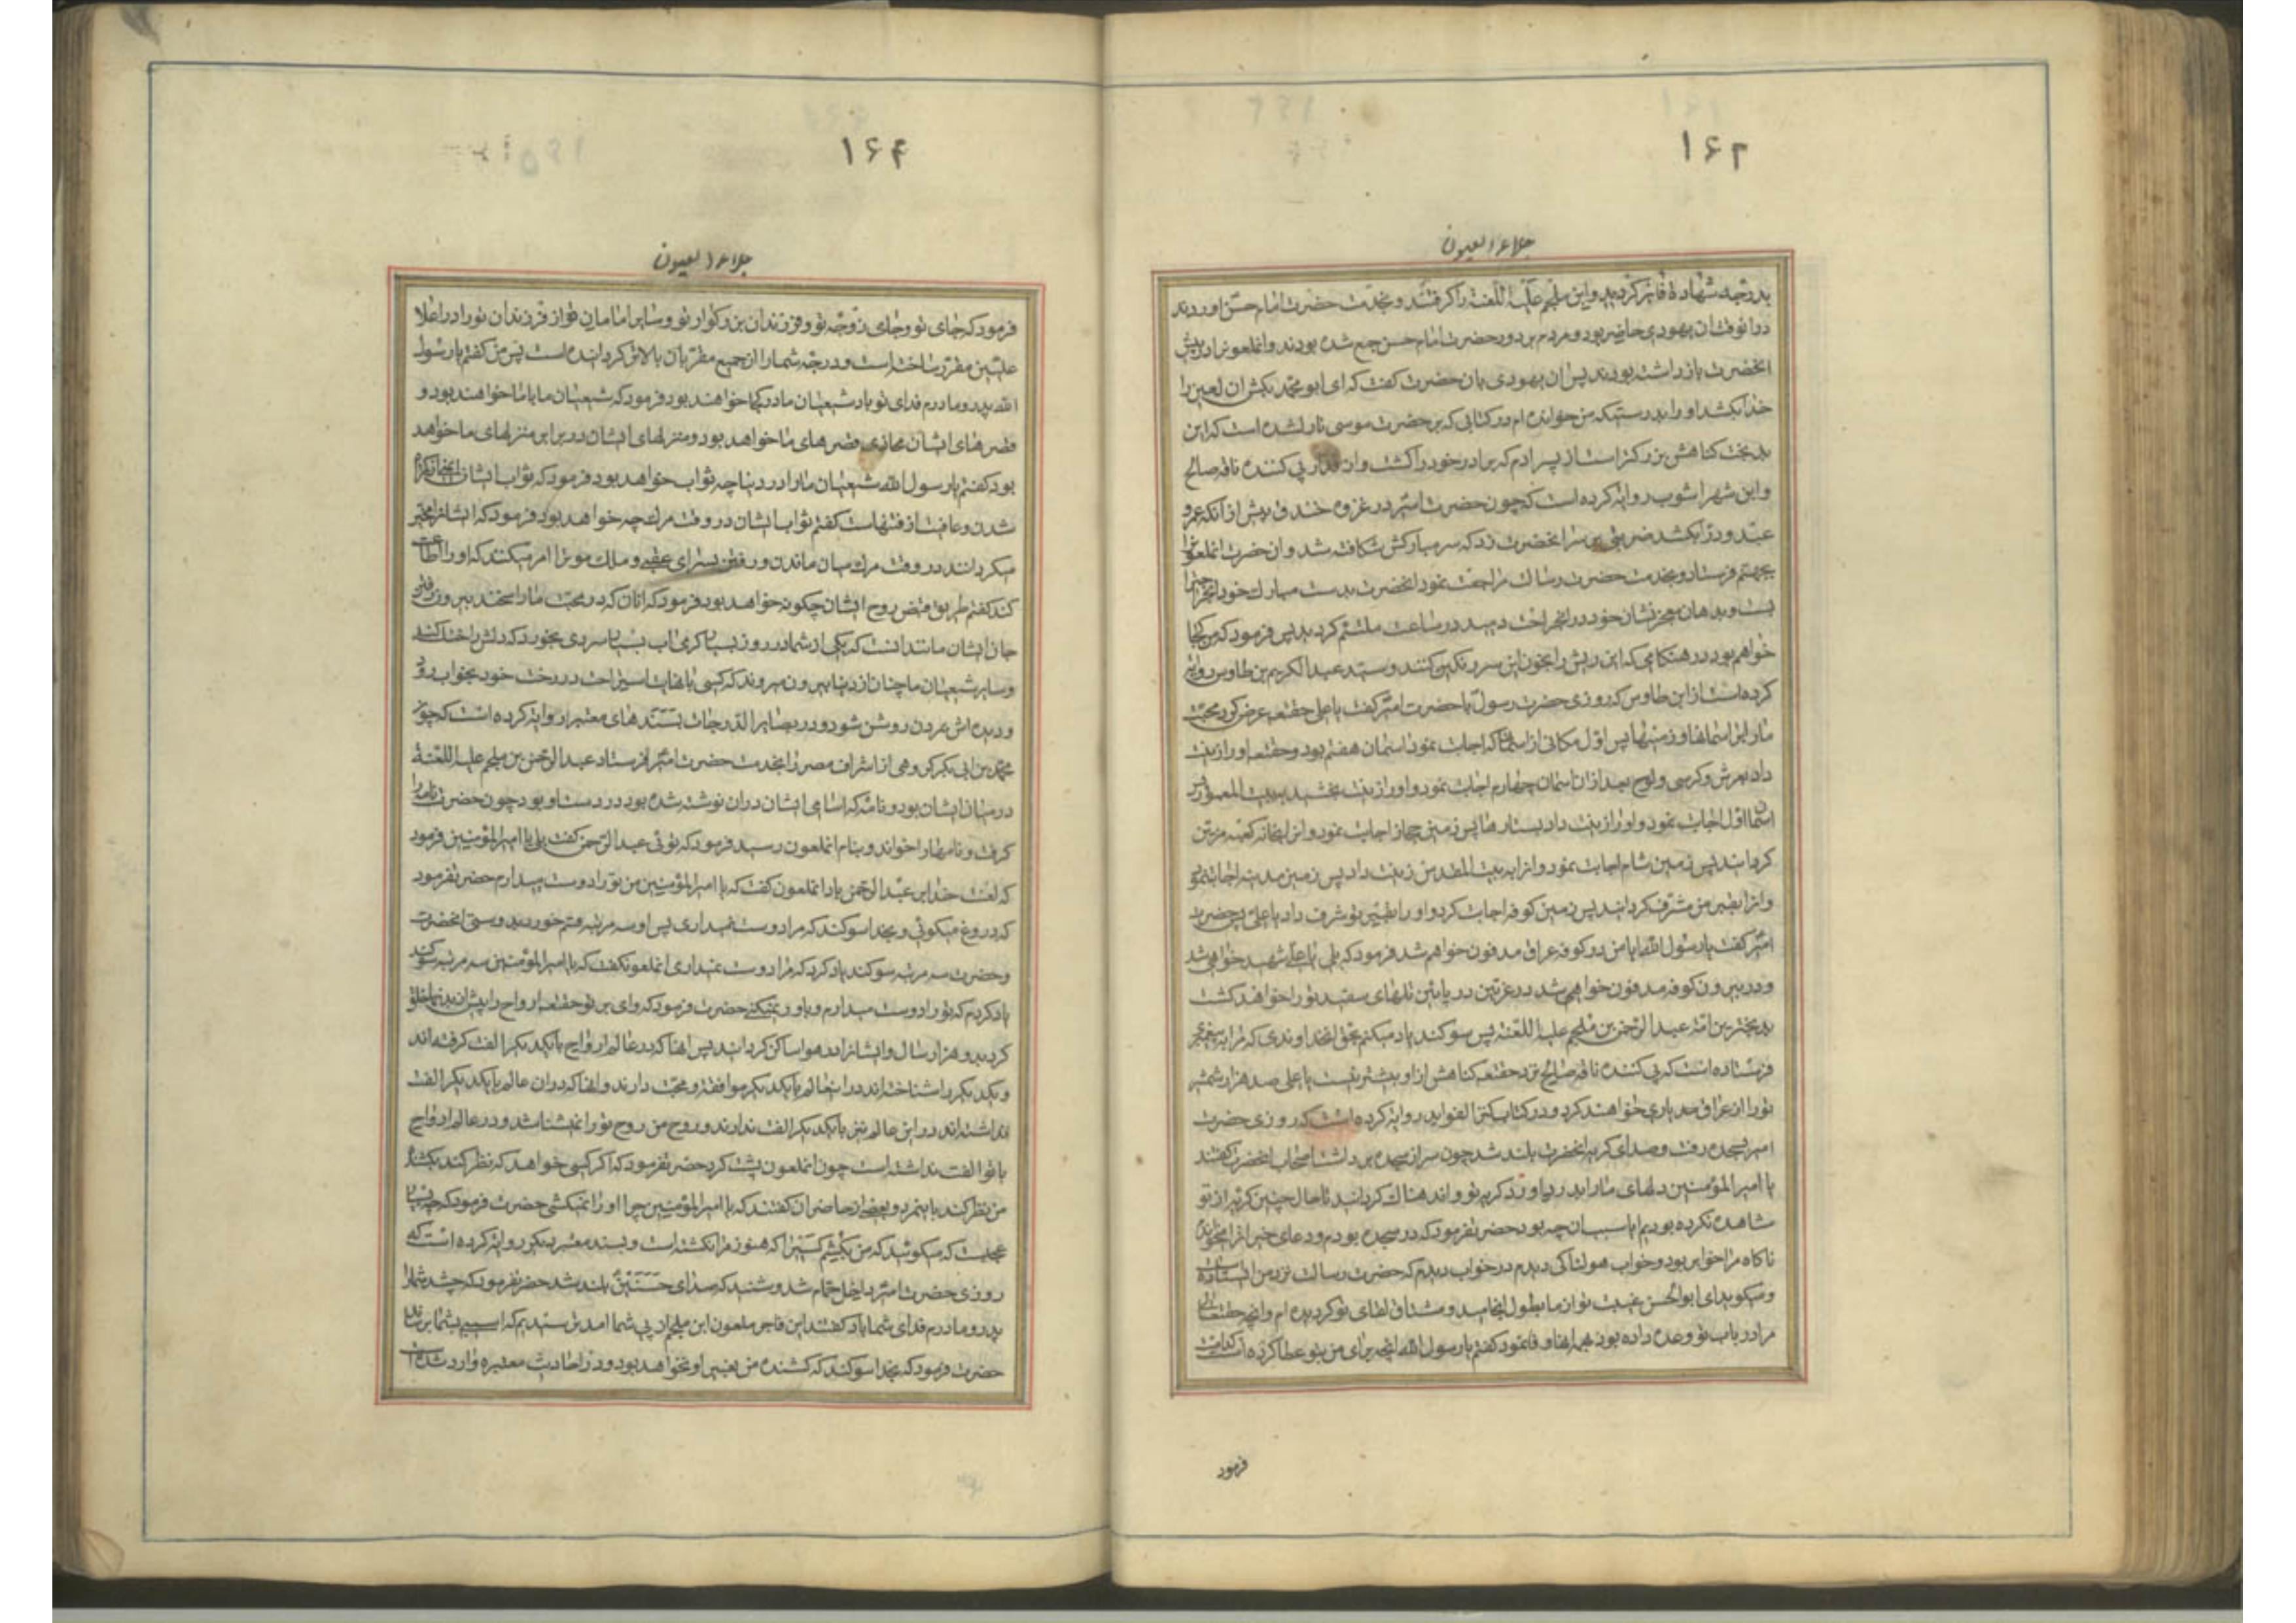 ۱۶۲
جلاء العیون
بدرجه شهادة فایز کردید و ابن ملجم علیه اللعنه را کرفتند و بخدمت حضرت امام حسن اوردند
درانوقت ان یهودی حاضر بود و مردم بر دور حضرت امام حسن جمع شده بودند و انملعونرا در پیش
انحضرت بازداشته بودند پس ان یهودی بان حضرت کفت که ای ابو محمد بکش ان لعین را
خدا بکشد او را بدرستیکه من خوانده ام در کتابی که بر حضرت موسی نازلشده است که این
بدبخت کناهش بزرکتر است از پسر ادم که برادر خود را کشت و از قدار پی کننده ناقه صالح
و ابن شهراشوب روایة کرده است که چون حضرت امیر در غزوه خندق پیش از انکه عمرو
عبدود را بکشد ضربتی بر سر انحضرت زد که سر مبارکش شکافته شد و ان حضرت انملعونرا
بجهنم فرستاد و بخدمت حضرت رسالت مراجعت نمود انحضرت بدست مبارک خود انجراحترا
بست و بدهان معجز نشان خود در انجراحت دمید در ساعت ملتئم کردید پس فرمود که من کجا
خواهم بود در هنکامی که این ریش را بخون این سر رنکین کنند و سید عبد الکریم بن طاوس روایة
کرده است از ابن طاوس که روزی حضرت رسول با حضرت امیر کفت یا علی حقتعه عرض کرد محبت
ما را بر اسمانها و زمینها پس اول مکانی از اسمانها که اجابت نمود اسمان هفتم بود و حقتعه او را زینت
داد بعرش و کرسی و لوح بعد از ان اسمان چهارم اجابت نمود و او را زینت بخشید ببیت المعمور پس
اسمان اول اجابت نمود و او را زینت داد بستارها پس زمین حجاز اجابت نمود و انرا بخانه کعبه مزین
کردانید پس زمین شام اجابت نمود و انرا به بیت المقدس زینت داد پس زمین مدینه اجابت نمود
و انرا بقبر من مشرف کردانید پس زمین کوفه اجابت کرد و او را بقبر تو شرف داد یا علی پس حضرت
امیر کفت یا رسول الله ایا من در کوفه عراق مدفون خواهم شد فرمود که بلی یا علی شهید خواهی شد
و در بیرون کوفه مدفون خواهی شد در غریین در پایین تلهای سفید تو را خواهد کشت
بدبخترین امة عبد الرحمن بن ملجم علیه اللعنه پس سوکند یاد میکنم بحق انخداوندی که مرا به پیغمبری
فرستاده است که پی کننده ناقه صالح نزد حقتعه کناهش از او بیشتر نیست یا علی صد هزار شمشیر
تو را از عراق مدد یاری خواهند کرد و در کتاب کنز الفواید روایة کرده است که روزی حضرت
امیر بسجده رفت و صدای کریه انحضرت بلند شد چون سر از سجده برداشت اصحاب انحضرت کفتند
یا امیر المؤمنین دلهای ما را بدرد اورد کریه تو و اندهناک کردانید تا حال چنین کریه از تو
مشاهده نکرده بودیم ایا سبب ان چه بود حضرتفرمود که در سجده بودم و دعای خیر انرا میخواندم
ناکاه مرا خواب ربود و خواب هولناکی دیدم در خواب دیدم که حضرت رسالت نزد من ایستاده است
و میکوید ای ابوالحسن غیبت تو از ما بطول انجامید و مشتاق لقای تو کردیده ام و انچه حقتعالی
مرا در باب تو وعده داده بود همه انها وفا نمود کفتم یا رسول الله انچه برای من بتو عطا کرده است کدامست
فرمود
۱۶۴
جلاء العیون
فرمود که جای تو و جای زوجه تو و فرزندان بزرکوار تو و سایر امامان تو از فرزندان تو را در اعلا
علیین مقرر ساخته است و درجه شما را از جمیع مقربان بالاتر کردانیده است پس من کفتم یا رسول
الله پدر و مادرم فدای تو باد شیعیان ما در کجا خواهند بود فرمود که شیعیان ما با ما خواهند بود و
قصرهای ایشان محاذی قصرهای ما خواهد بود و منزلهای ایشان در برابر منزلهای ما خواهد
بود کفتم یا رسول الله شیعیان ما را در دنیا چه ثواب خواهد بود فرمود که ثواب ایشان
شدن و عافیت از فتنهاست کفتم ثواب ایشان در وقت مرک چه خواهد بود فرمود که ایشانرا مخیر
میکردانند در وقت مرک میان ماندن و رفتن بسرای عقبی و ملک موترا امر میکنند که او را اطاعت
کند کفتم طریق قبض روح ایشان چکونه خواهد بود فرمود که انان که در محبت ما راسخند بیرون رفتن
جان ایشان مانند انست که یکی از شما در روز بسیار کرمی اب بسیار سردی بخورد که دلش را خنک کند
و سایر شیعیان ما چنان از دنیا بیرون میروند که کسی بانهایت استراحت در رخت خود بخواب رود
و دیده اش بمردن روشن شود و در بصایر الدرجات بسندهای معتبر از روایة کرده است که چون
محمد بن ابی بکر کروهی از اشراف مصر را بخدمت حضرت امیر فرستاد عبد الرحمن بن ملجم علیه اللعنة
در میان ایشان بود و نامه که اسامی ایشان دران نوشته شده بود در دست او بود چون حضرت نامه را
کرفت و نامها را خواند و بنام انملعون رسید فرمود که توئی عبد الرحمن کفت بلی یا امیر المؤمنین فرمود
که لعنت خدا بر عبد الرحمن باد انملعون کفت که یا امیر المؤمنین من تو را دوست میدارم حضرتفرمود
که دروغ میکوئی و بخدا سوکند که مرا دوست نمیداری پس او سه مرتبه قسم خورد بدوستی انحضرت
و حضرت سه مرتبه سوکند یاد کرد که مرا دوست نمیداری انملعونکفت که یا امیر المؤمنین سه مرتبه سوکند
یاد کردم که تو را دوست میدارم و باور نمیکنی حضرت فرمود که وای بر تو حقتعه ارواح را پیش از بدنها خلق
کرد بدو هزار سال و ایشانرا در هوا ساکن کردانید پس انها که در عالم ارواح با یکدیکر الفت کرفته اند
و یکدیکر را شناخته اند در اینعالم با یکدیکر موافقة و محبت دارند و انها که دران عالم با یکدیکر الفت
نداشته اند در این عالم نیز با یکدیکر الفت ندارند و روح من روح تو را نمیشناسد و در عالم ارواح
با تو الفت نداشته است چون انملعون پشت کرد حضرتفرمود که اکر کسی خواهد که نظر کند بکشنده
من نظر کند باینمرد و بعضی از حاضران کفتند که یا امیر المؤمنین چرا او را نمیکشی حضرت فرمود که چه بسیار
عجبست که میکوئید که من بکشم کسیرا که هنوز مرا نکشته است و بسند معتبر دیکر روایة کرده است که
روزی حضرت امیر داخل حمام شد و شنید که صدای حسنین بلند شد حضرتفرمود که چه شد شما را
پدر و مادرم فدای شما باد کفتند این فاجر ملعون ابن ملجم از پی شما امد ترسیدیم که اسیبی بشما برساند
حضرت فرمود که بخدا سوکند که کشنده من بغیر او نخواهد بود و در احادیث معتبره وارد شده است